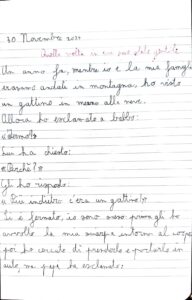 30 Novembre 2021
Quella volta in cui sono stato gentile
Un anno fa, mentre io e la mia famiglia
eravamo andati in montagna, ho visto
un gattino in mezzo alla neve.
Allora ho esclamato a babbo:
«Fermati»
Lui ha chiesto:
«Perché?»
Gli ho risposto:
«Più indietro c'era un gattino!»
Si è fermato, io sono sceso gli ho
avvolto la mia sciarpa intorno al corpo
poi ho cercato di prenderlo e portarlo in
auto, ma papà ha esclamato: